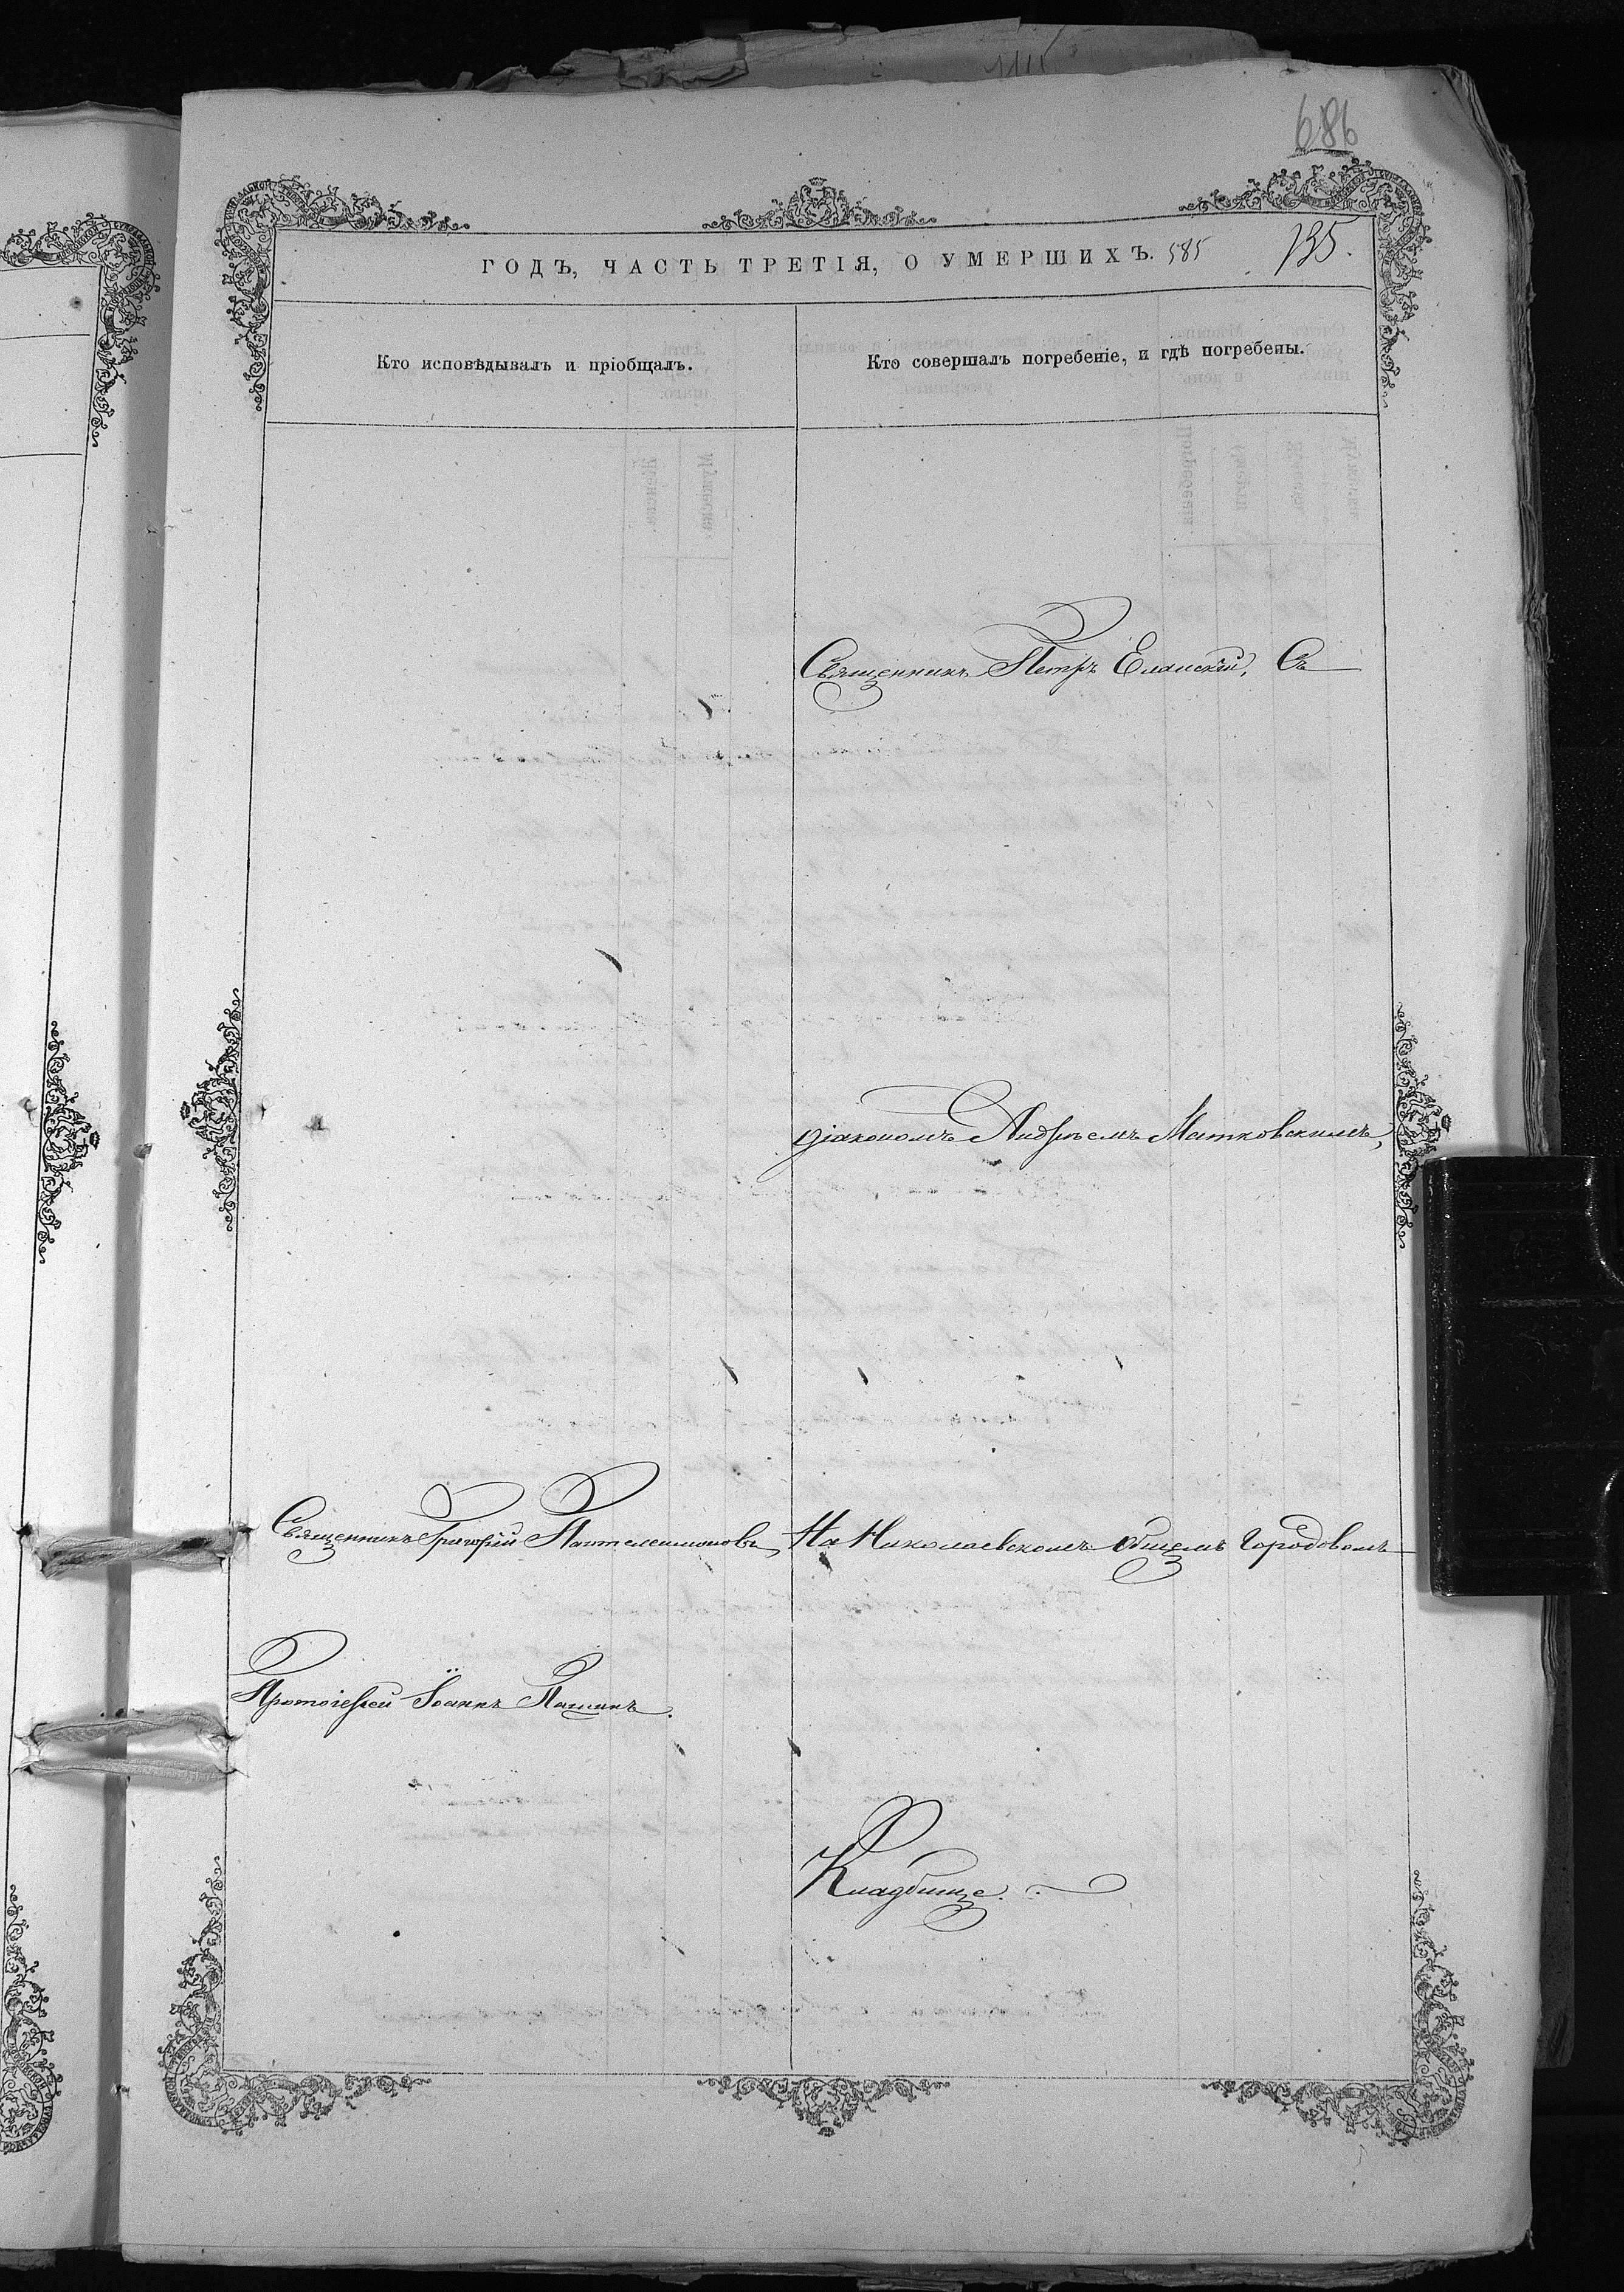 686
ГОДЪ, ЧАСТЬ ТРЕТІЯ, О УМЕРШИХЪ. 585 135.
Кто исповѣдывалъ и пріобщалъ.
Кто совершалъ погребеніе, и гдѣ погребены.
Священникъ Петръ Еланскій, Съ
діакономъ Андреемъ Матковскимъ,
Священникъ Григорій Пантелеимоновъ,
На Николаевскомъ общемъ Городовомъ
Протоіерей Іоаннъ
Кладбище.